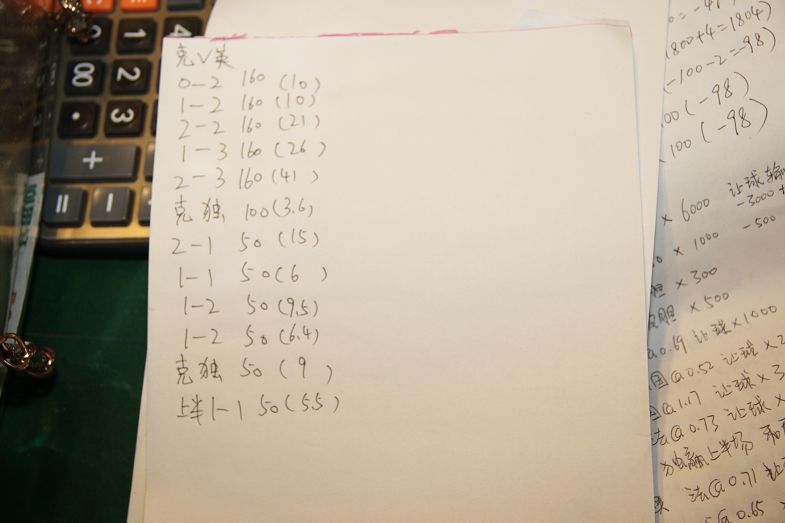 克V英
0-2 160 (10)
1-2 160 (10)
2-2 160 (21)
1-3 160 (26)
2-3 160 (41)
克独 100 (3.6)
2-1 50 (15)
1-1 50 (6)
1-2 50 (9.5)
1-2 50 (6.4)
克独 50 (9)
上半1-1 50 (5.5)
(800+4=1804)
(-100-2=-98)
00 (-98)
100 (-98)
× 6000 让球输
-3000+
× 1000 -500
胆 × 300
胆 × 500
@0.69 让球×1000
国@0.52 让球×2
国@1.17 让球×3
法@0.73 让球×
赢上半场
法@0.71 让
@0.65 ×
1
00
2
•
3
+
=